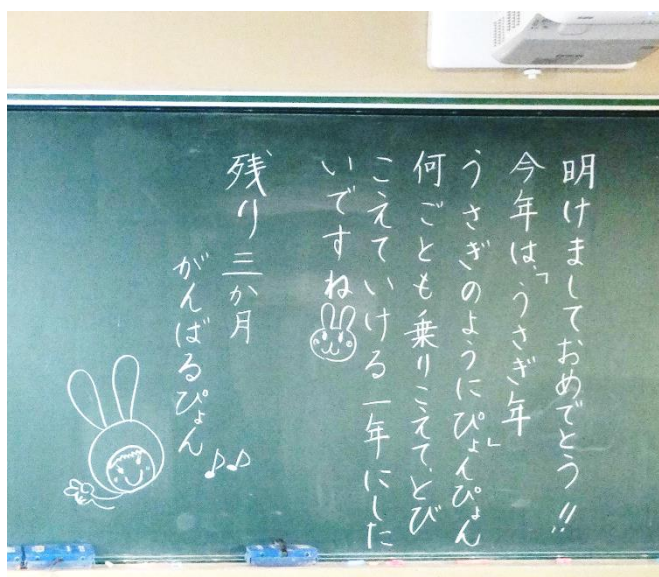 明けましておめでとう!!
今年は、「うさぎ年」
うさぎのようにぴょんぴょん
何ごとも乗りこえて、とび
こえていける一年にした
いですね
残り三か月
がんばるぴょん♪♪